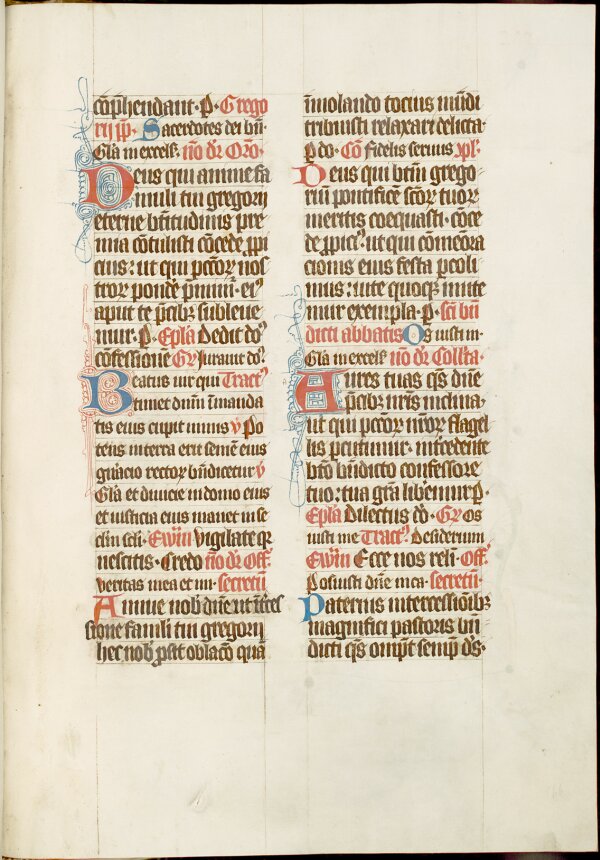 cōp̄hendant · P · Grego
rij pp̄ · Sacerdotes dei bn̄ ·
Gl̄a in excels̄ · nō dr̄ Orō ·
Deus qui anime fa
muli tui gregorij
eterne bt̄itudinis pre
mia cōtulisti cōcede ꝓpi
cius : ut qui pc̄cor̄ nos
tror̄ ponde p̄mimr̄ · eiꝰ
aput te p̄cibꝫ subleue
mur · P · Ep̄la Dedit dōꝰ
cōfessione Gr̄ Jurauit dōꝰ ·
Beatus uir qui Tractꝰ
timet dnm̄ ī manda
tis eius cupit nimis ꝟ Po
tens in terra erit semē eius
gn̄acio rectoꝝ bn̄dicetur ꝟ
Gl̄a et diuicie in domo eius
et iusticia eius manet in se
clm̄ scl̄i · Ewm̄ Vigilate qꝛ
nescitis · Credo nō dr̄ Off̄ ·
Veritas mea et m̄ · secretū
Annue nob̄ dn̄e ut īt̄ces
sione famlī tui gregorij
hec nob̄ ꝓsit oblac̄o quā
īmolando tocius mūdi
tribuisti relaxari delicta ·
P do · Cō Fidelis seruus xpl̄ ·
Deus qui bt̄m grego
riū pontificē sc̄oꝝ tuoꝝ
meritis coequasti · cōce
de ꝓpici9 ut qui cōmēora
cionis eius festa ꝑcoli
mus : uite quoqꝫ imite
mur exempla · P · sc̄i bn̄
dicti abbatis Os iusti in ·
Gl̄a in excels̄ nō dr̄ Collc̄ta ·
Aures tuas qs̄ dn̄e
p̄cibꝫ nr̄is inclina ·
ut qui pc̄coꝝ nr̄oꝝ flagel
lis ꝑcutimur · int̄cedente
bt̄o bn̄dicto confessore
tuo : tua gr̄a libemur · P ·
Ep̄la Dilectus dō · Gr̄ Os
iusti me Tractꝰ · Desiderium
Ewm̄ Ecce nos reli · Off̄ ·
Posuisti dn̄e in ca · secretū ·
Paternis intercessiōibꝫ
magnifici pastoris bn̄
dicti qs̄ omp̄t semp̄ ds̄ ·